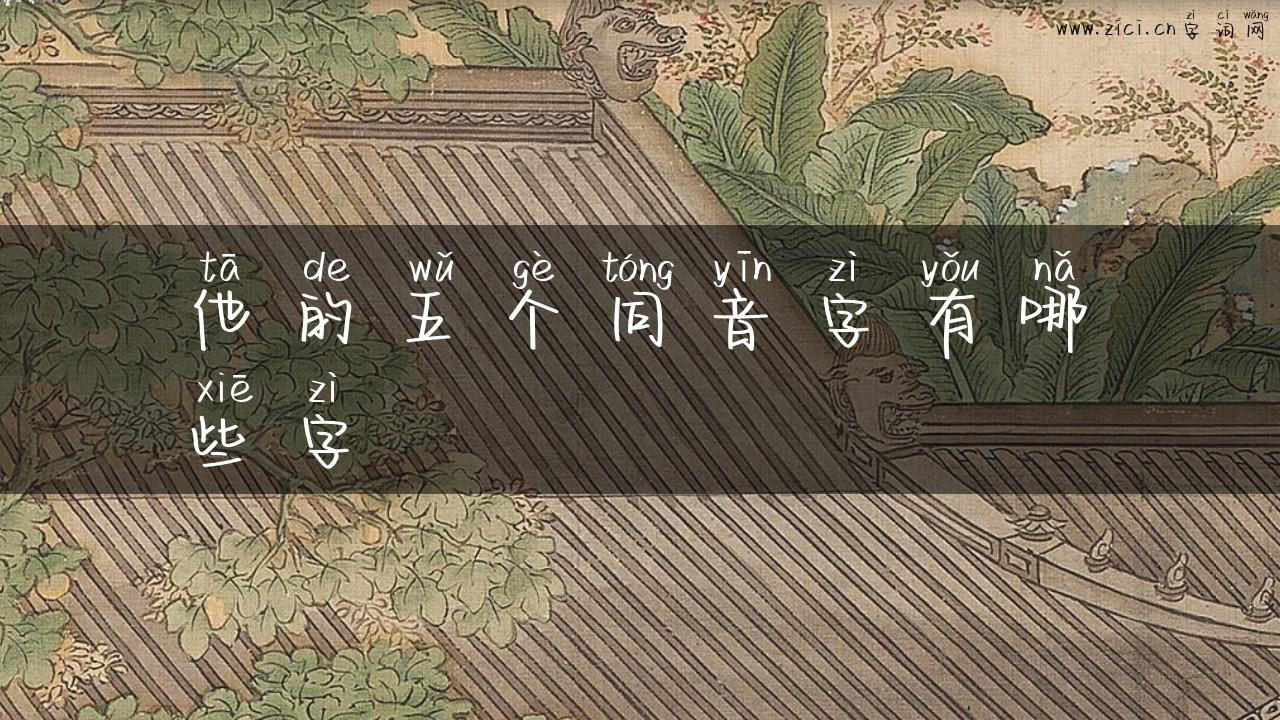 zì cí wǎng
www.zici.cn 字词网
tā de wǔ gè tóng yīn zì yǒu nǎ
他的五个同音字有哪
xiē zì
些字